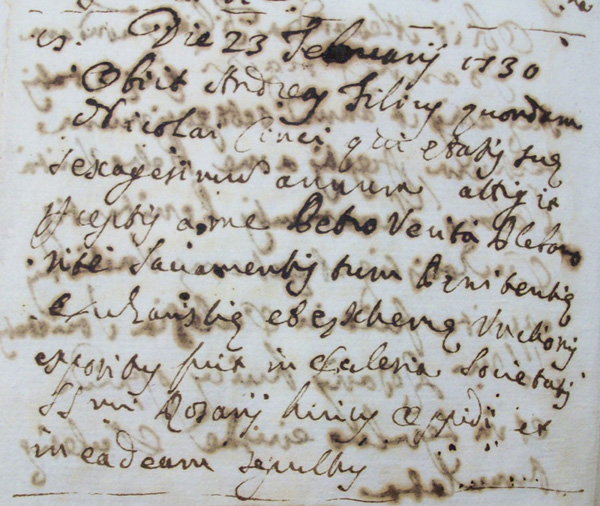 Die 23 Februarij 1730
Obijt Andreas Filius quondam
Nicolai Cinci qui etatis sue
sexagesimum annum attigit
acceptis a me Petro Verità Plebano
rite Sacramentis tum Penitentie
Eucharistie et extreme Unctionis
expositus fuit in Ecclesia Societatis
SS mi Rosarij huius Oppidi et
in eadeam sepultus